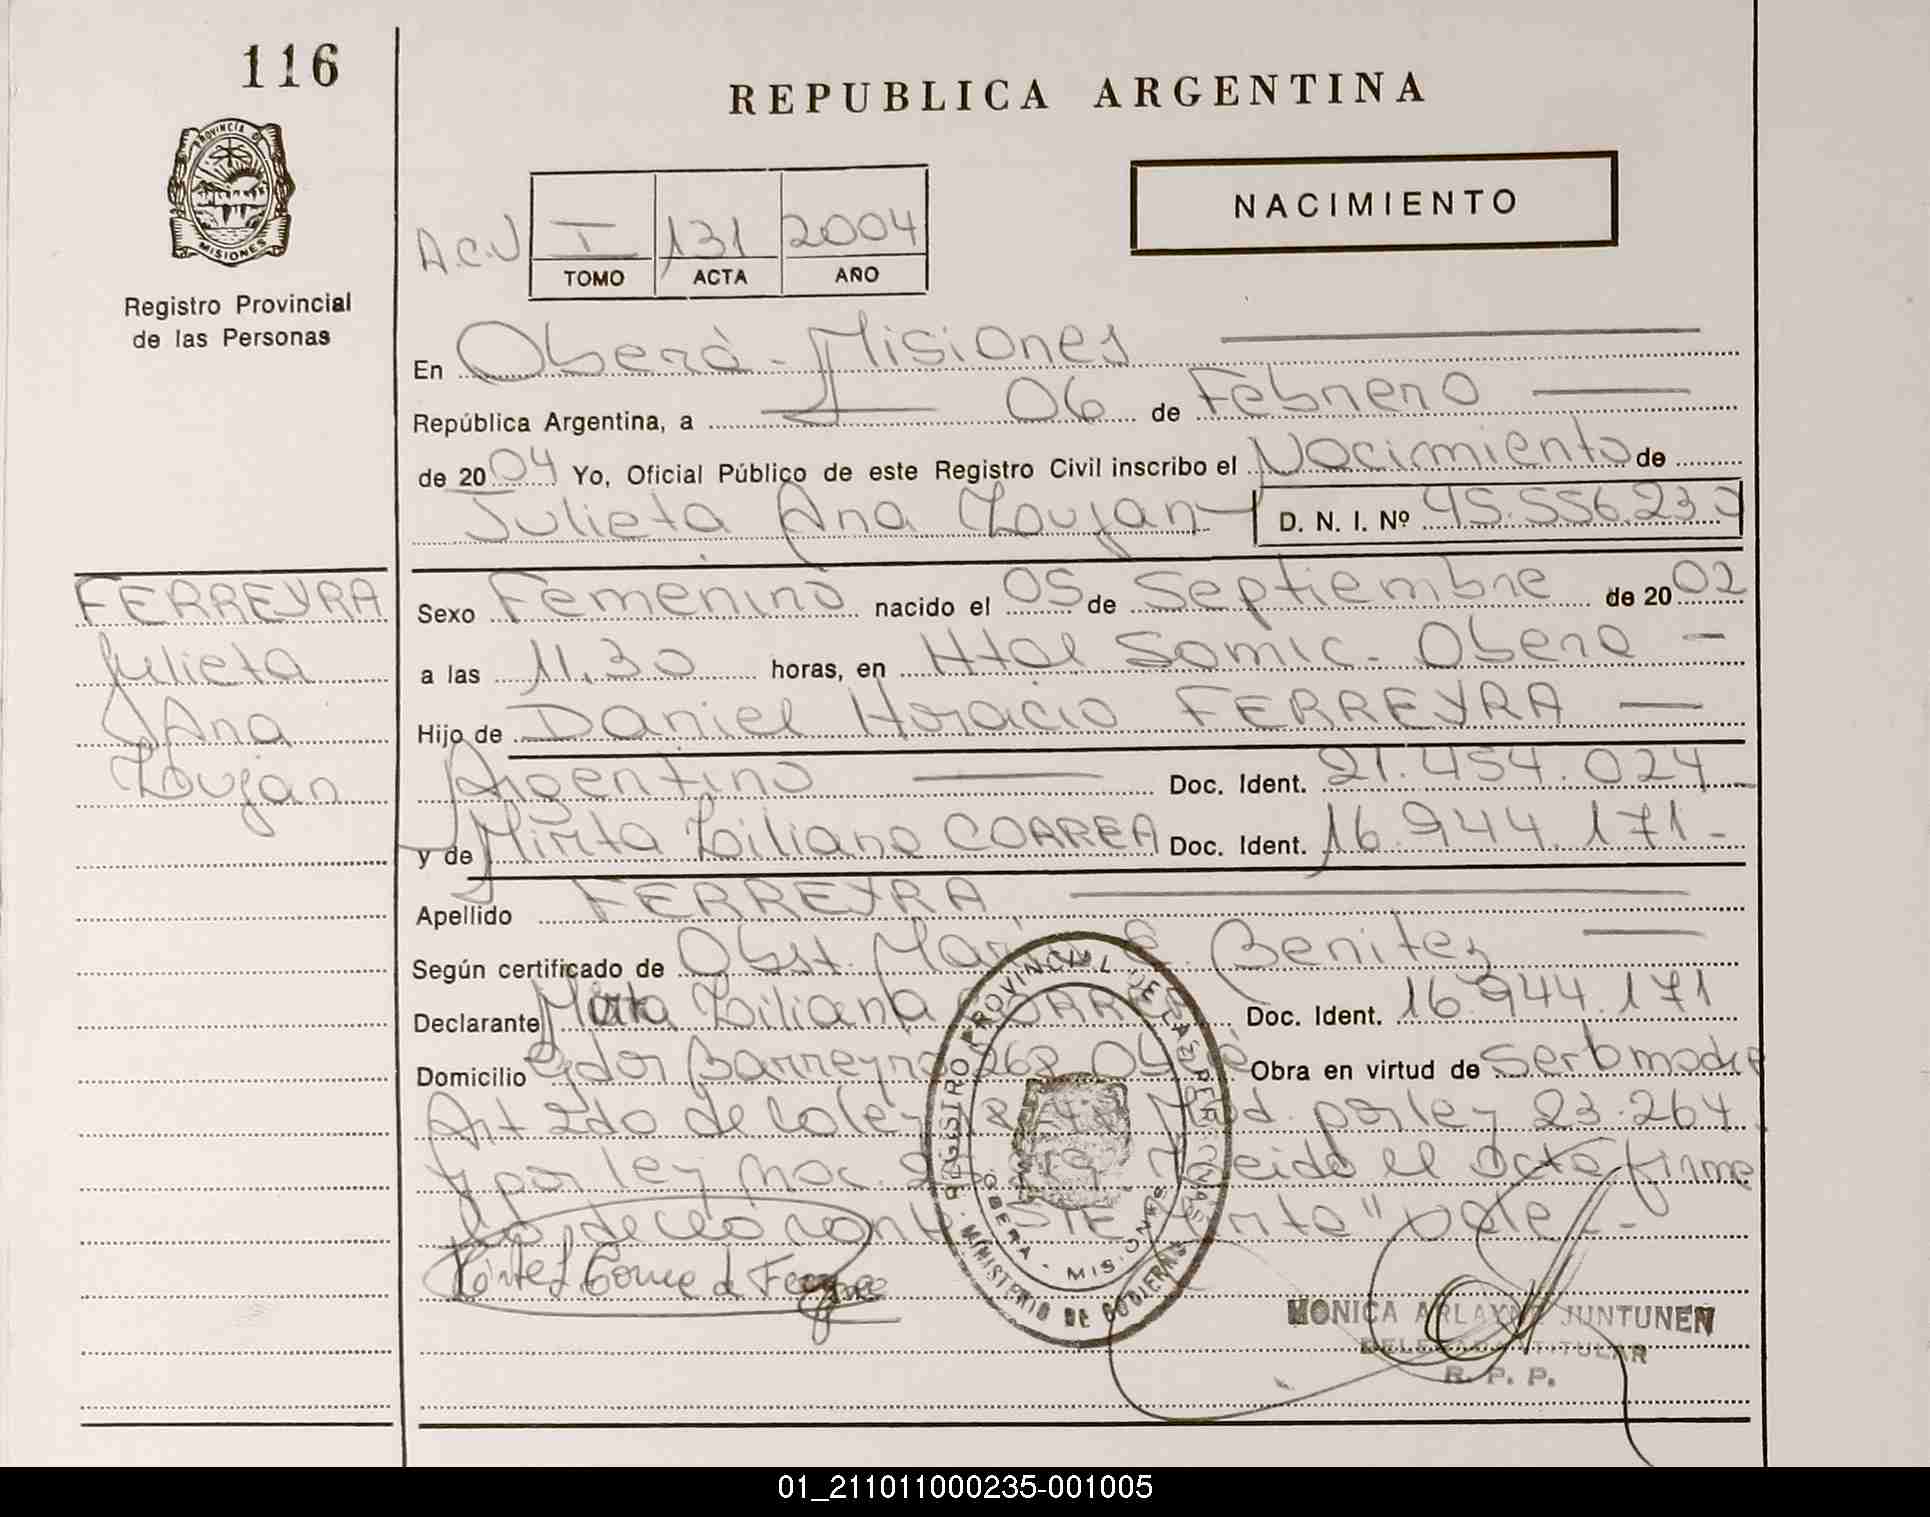 116
REPUBLICA ARGENTINA
PROVINCIA D
MISIONES
Registro Provincial
de las Personas
NACIMIENTO
A.C.J I 131 2004
TOMO ACTA AÑO
En Oberá - Misiones
República Argentina, a 06 de Febrero
de 2004 Yo, Oficial Público de este Registro Civil inscribo el Nacimiento de
Julieta Ana Loujan D. N. I. Nº 45.556.23
FERREYRA
Julieta
Ana
Loujan
Sexo Femenino nacido el 05 de Septiembre de 2002
a las 11,30 horas, en Htal Samic - Obera -
Hijo de Daniel Horacio FERREYRA
Argentino Doc. Ident. 21.454.024
y de Mirta Liliana CORREA Doc. Ident. 16.944.171 -
Apellido FERREYRA
Según certificado de Obst. Maria E. Benitez
Declarante Mirta Liliana CORREA Doc. Ident. 16.944.171
Domicilio Gdor Barreyro 268 Obera Obra en virtud de ser la madre
Art 2do de la ley 18248 Mod. por ley 23.264
y por ley Nac. leido el acta firma
la declarante S/E "Mirta" Vale. -
REGISTRO PROVINCIAL DE LAS PERSONAS
OBERA - MISIONES
MINISTERIO DE GOBIERNO
MONICA ARLAYNE JUNTUNEN
DELEGADA TITULAR
R. P. P.
01_211011000235-001005